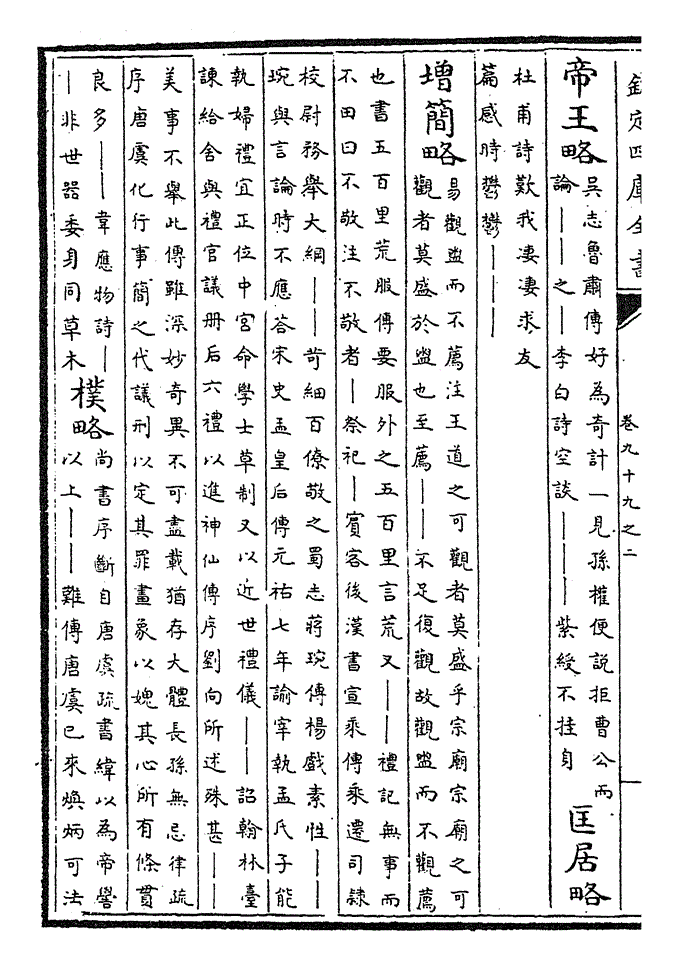 欽定四庫全書
卷九十九之二
帝王略
吳志魯肅傳好為奇計一見孫權便說拒曹公而
論——之—李白詩空談————紫綬不挂身
匡居略
杜甫詩歎我淒淒求友
篇感時鬱鬱———
增簡略
易觀盥而不薦注王道之可觀者莫盛乎宗廟宗廟之可
觀者莫盛於盥也至薦——不足復觀故觀盥而不觀薦
也書五百里荒服傳要服外之五百里言荒又——禮記無事而
不田曰不敬注不敬者—祭祀—賓客後漢書宣秉傳秉遷司隸
校尉務舉大綱——苛細百僚敬之蜀志蔣琬傳楊戲素性——
琬與言論時不應答宋史孟皇后傳元祐七年諭宰執孟氏子能
執婦禮宜正位中宮命學士草制又以近世禮儀——詔翰林臺
諫給舍與禮官議册后六禮以進神仙傳序劉向所述殊甚——
美事不舉此傳雖深妙奇異不可盡載猶存大體長孫無忌律疏
序唐虞化行事簡之代議刑以定其罪畫象以媿其心所有條貫
良多——韋應物詩—
—非世器委身同草木
樸略
尚書序斷自唐虞疏書緯以為帝嚳
以上———難傳唐虞已來煥炳可法